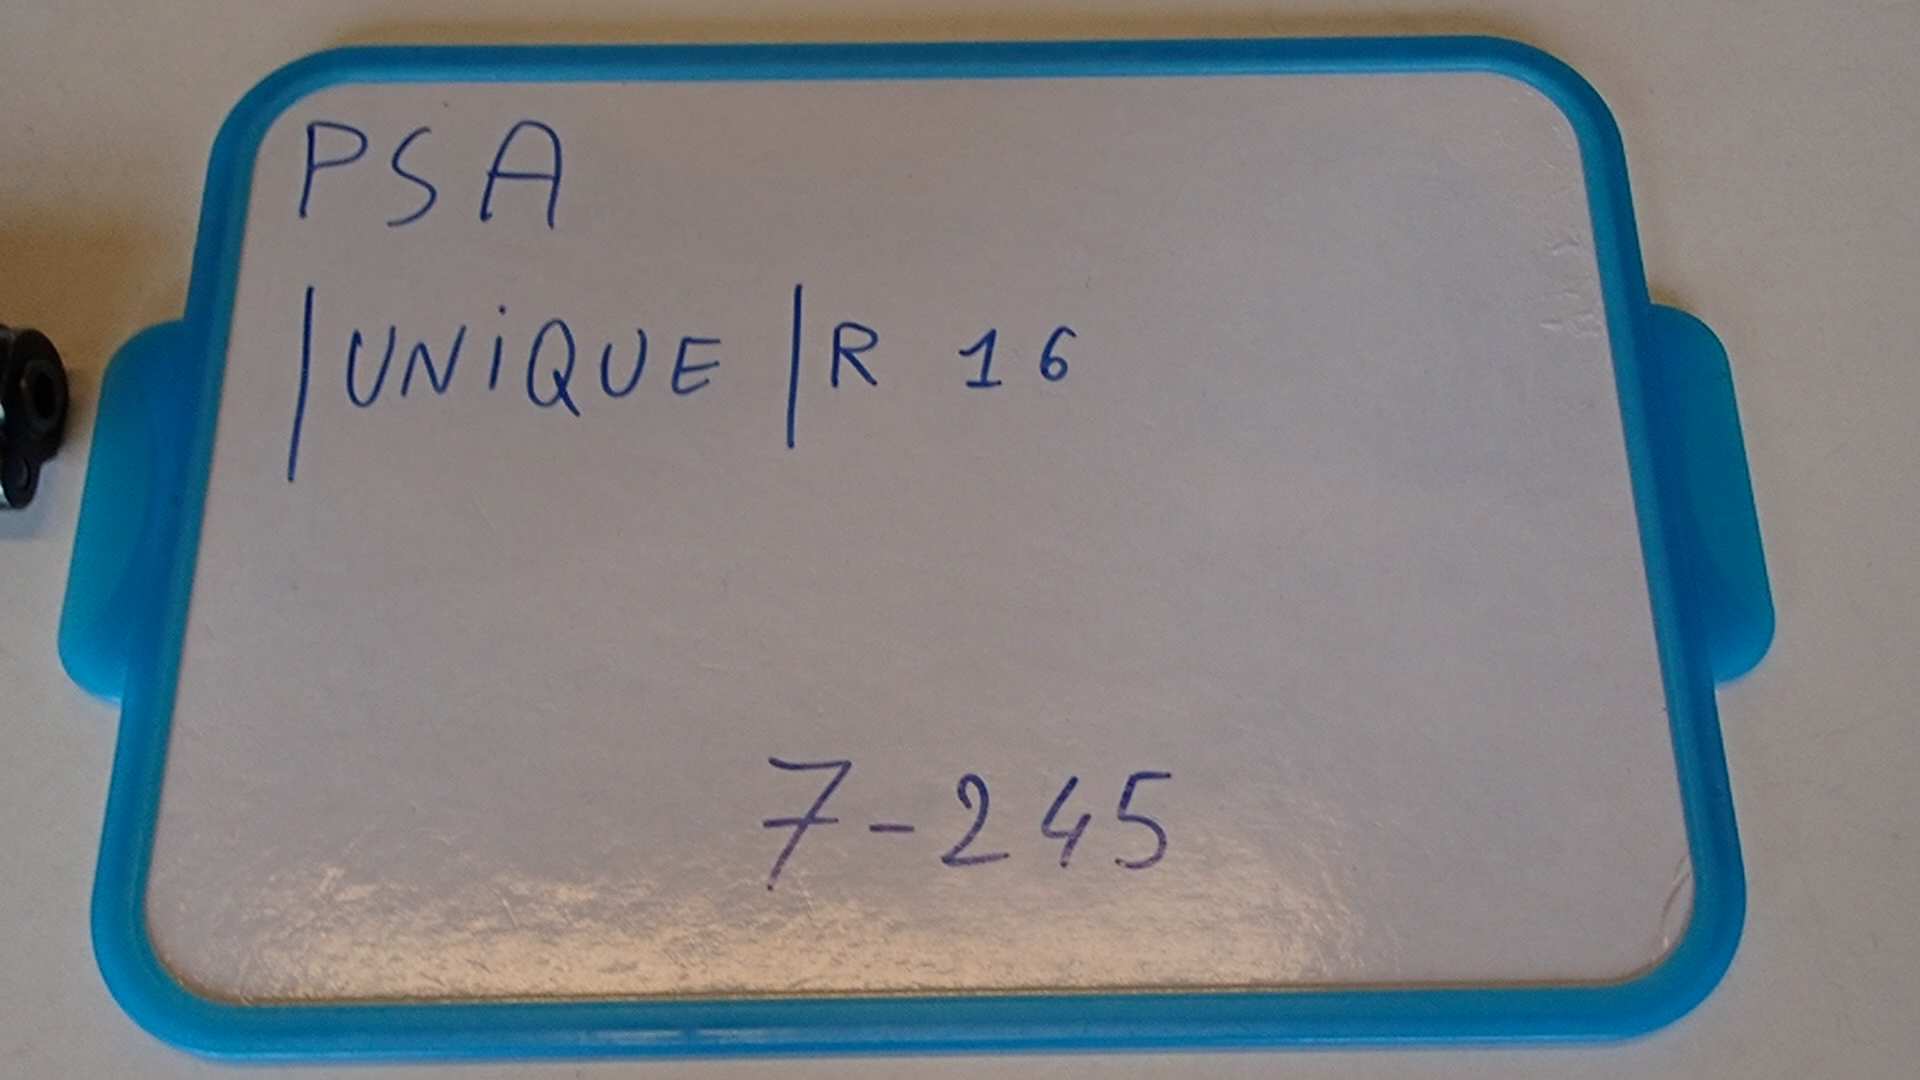 PSA
|UNiQUE |R 16
7-245